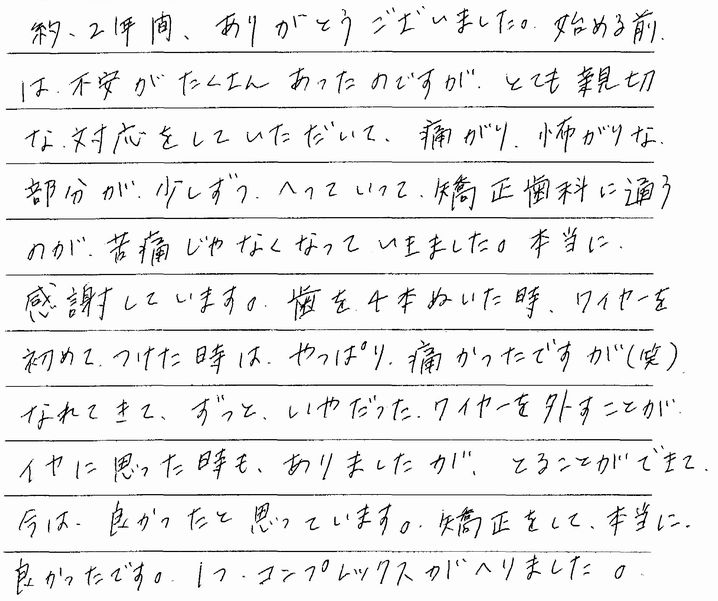 約、2年間、ありがとうございました。始める前
は、不安がたくさんあったのですが、とても親切
な対応をしていただいて、痛がり、怖がりな
部分が、少しずつ、へっていって、矯正歯科に通う
のが、苦痛じゃなくなっていきました。本当に、
感謝しています。歯を4本ぬいた時、ワイヤーを
初めて、つけた時は、やっぱり、痛かったですが(笑)
なれてきて、ずっと、いやだった、ワイヤーを外すことが
イヤに思った時も、ありましたが、とることができて、
今は、良かったと思っています。矯正をして、本当に、
良かったです。1つ、コンプレックスがへりました。